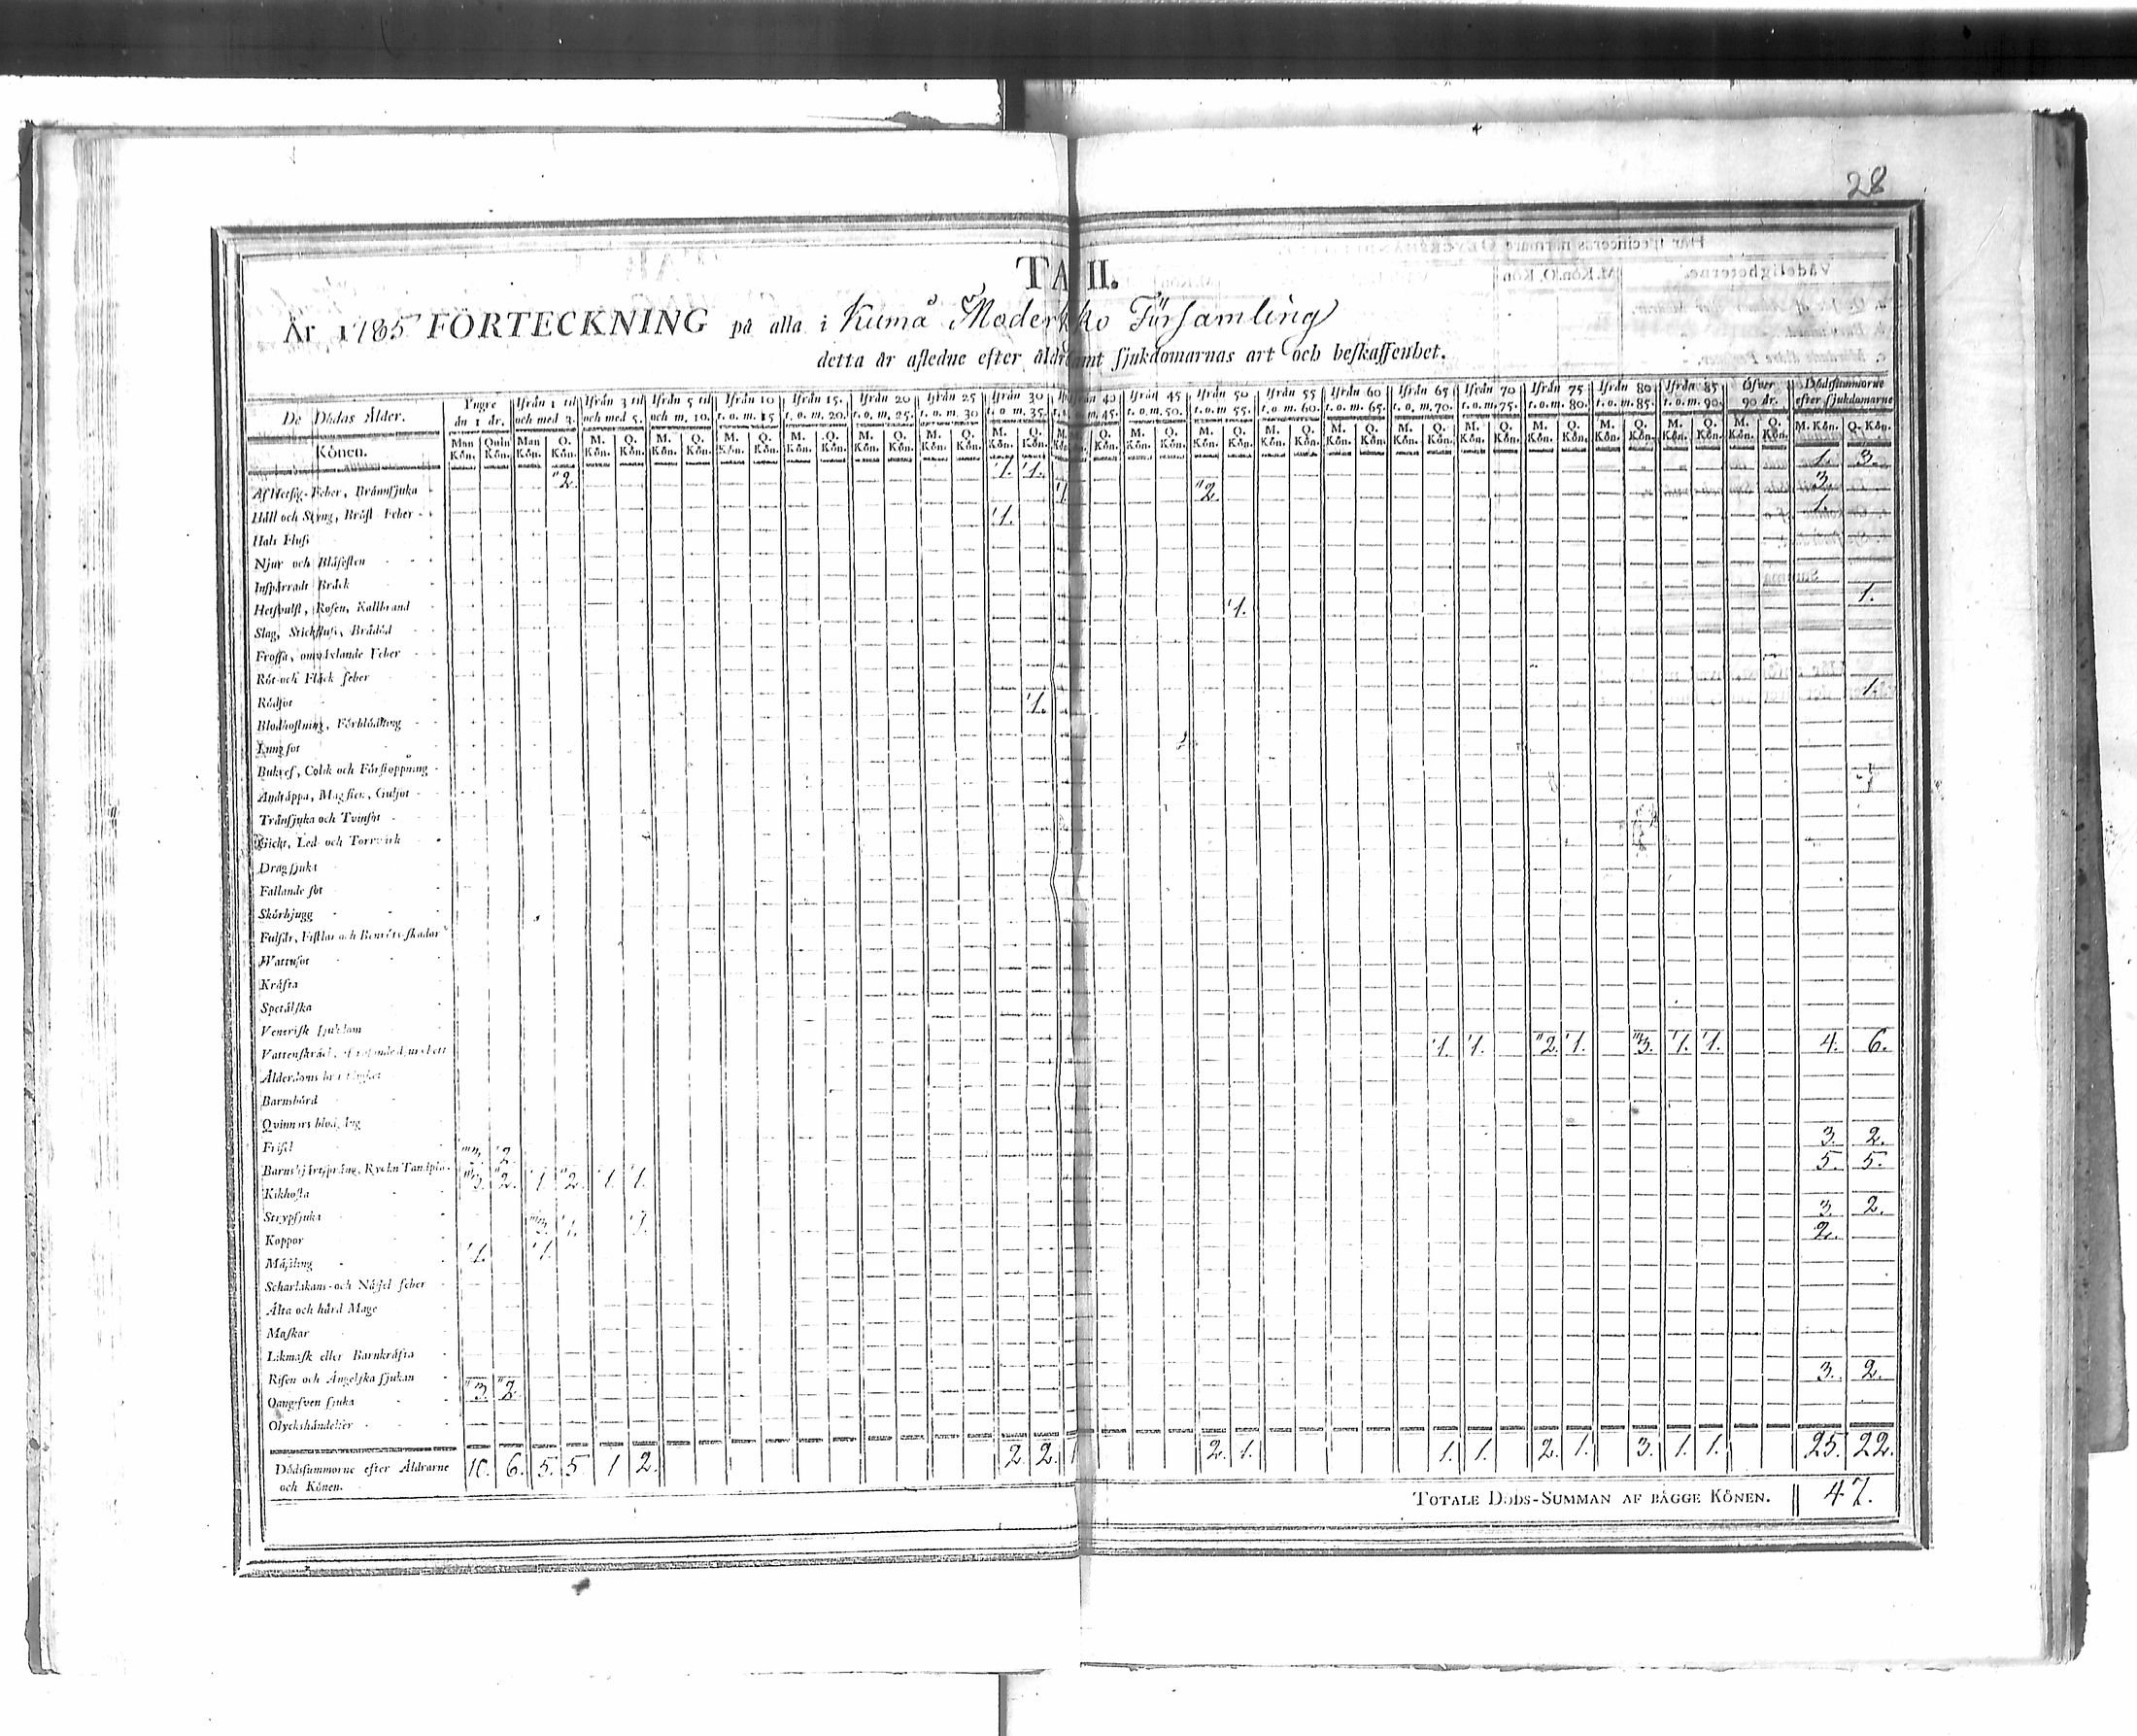 28
TA II.
År 1785 FÖRTECKNING på alla i Kumå Moderk ko Församling
detta år afledne efter åldr samt sjukdomarnas art och beskaffenhet.
De Dödas Ålder. Yngre än 1 år. Ifrån 1 til och med 3. Ifrån 3 til och med 5. Ifrån 5 til och m. 10. Ifrån 10 t. o. m. 15 Ifrån 15. t. o. m. 20. Ifrån 20 t. o. m. 25. Ifrån 25 t. o. m. 30 Ifrån 30 t. o m. 35. 40 m. 45. Ifrån 45 t. o. m. 50. Ifrån 50 t. o. m 55. Ifrån 55 t. o m. 60. Ifrån 60 t. o. m. 65. Ifrån 65 t. o. m. 70. Ifrån 70 t. o. m. 75. Ifrån 75 t. o. m. 80. Ifrån 80 t. o. m. 85. Ifrån 85 t. o. m. 90. Öfver 90 år. Dödssummorne efter sjukdomarne
Könen. Man Kön. Quin Kön. Man Kön. Q. Kön. M. Kön. Q. Kön. M. Kön. Q. Kön. M. Kön. Q. Kön. M. Kön. Q. Kön. M. Kön. Q. Kön. M. Kön. Q. Kön. M. Kön. Q. Kön. Q. Kön. M. Kön. Q. Kön. M. Kön. Q. Kön. M. Kön. Q. Kön. M. Kön. Q. Kön. M. Kön. Q. Kön. M. Kön. Q. Kön. M. Kön. Q. Kön. M. Kön. Q. Kön. M. Kön. Q. Kön. M. Kön. Q. Kön. M. Kön. Q. Kön.
Af Hetsig-Feber, Brännsjuka 2. 1. 1. 1. 3.
Håll och Styng, Bröst Feber 1 2. 3.
Hals Fluss 1. 1.
Njur och Blåsesten
Inspärradt Bråck
Hetsvulst, Rosen, Kallbrand
Slag, Stickfluss, Brådöd 1. 1.
Frossa, omväxlande Feber
Röt-och Fläck feber
Rödsot
Blodhostning, Förblödning 1. 1.
Lungsot
Bukref, Colik och Förstoppning
Andtäppa, Magsien, Gulsot
Tränsjuka och Tvinsot
Gicht, Led- och Torrverk
Dragsjuka
Fallande sot
Skörbjugg
Fulsår, Fistlar och Benröte-skador
Wattusot
Kräfta
Spetälska
Venerisk sjukdom
Ålderdoms 1. 1. 2. 1. 3. 1. 1. 4. 6.
Barnsbörd
Qvinnors
Frisel
Barns 3. 2. 3. 2.
Kikhosta 3. 2. 1 2. 1. 1. 5. 5.
Strypsjuka
Koppor 3. 1. 1. 3. 2.
Mäsling 1. 1. 2.
Scharlakans-och Nässel feber
Älta och hård Mage
Maskar
Likmask eller Barnkräfta
Risen och Ängelska sjukan
Oangifven sjuka 3. 2. 3. 2.
Olyckshändelser
Dödssummorne efter Åldrarne och Könen. 10. 6. 5. 5. 1 2. 2. 2. 1 2. 1. 1. 1. 2. 1. 3. 1. 1. 25. 22.
TOTALE DÖDS-SUMMAN AF BÄGGE KÖNEN. 47.